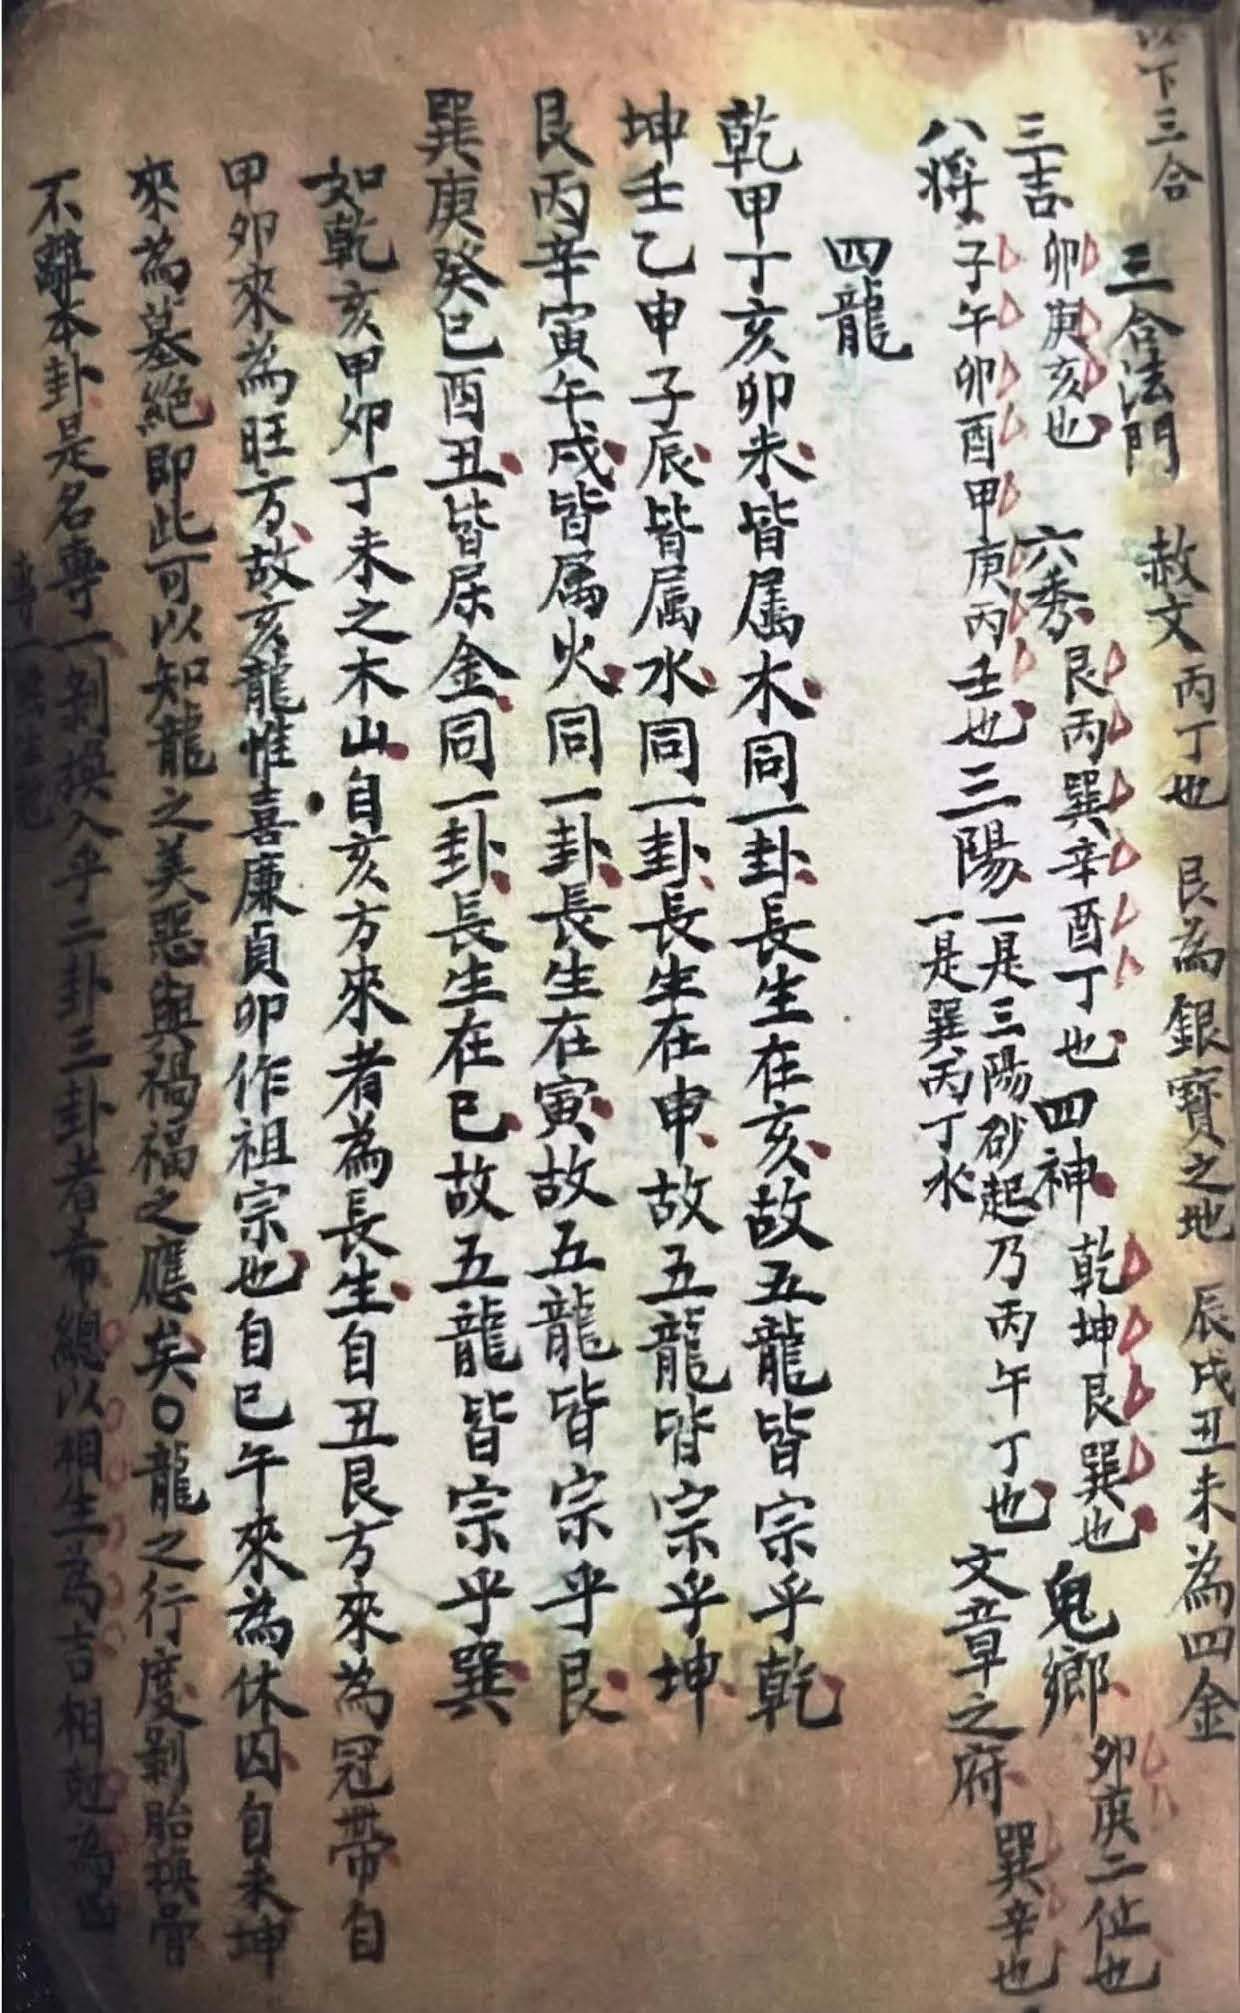 以下三合
三合法門 赦文 丙丁也 艮為銀寶之地 辰戌丑未為四金
三吉 卯庚亥也 六秀 艮丙巽辛酉丁也 四神 乾坤艮巽也 鬼鄉 卯庚二位也
八將 子午卯酉甲庚丙壬也 三陽 一是三陽砂起乃丙午丁也 一是巽丙丁水 文章之府 巽辛也
四龍
乾甲丁亥卯未皆属木同一卦長生在亥故五龍皆宗乎乾
坤壬乙申子辰皆属水同一卦長生在申故五龍皆宗乎坤
艮丙辛寅午戌皆属火同一卦長生在寅故五龍皆宗乎艮
巽庚癸巳酉丑皆属金同一卦長生在巳故五龍皆宗乎巽
如乾亥甲卯丁未之木山自亥方來者為長生自丑艮方來為冠帶自
甲卯來為旺方故亥龍惟喜廉貞卯作祖宗也自巳午來為休囚自未坤
來為墓絕即此可以知龍之美惡與禍福之應矣〇龍之行度剝胎換骨
不離本卦是名專一剝換入乎二卦三卦者希總以相生為吉相尅為凶